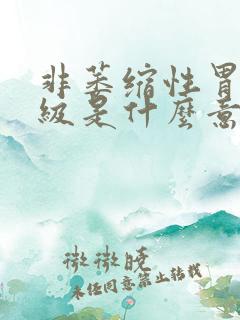 非萎缩性胃
级是什麼意
微微晓
未经同意禁止转载